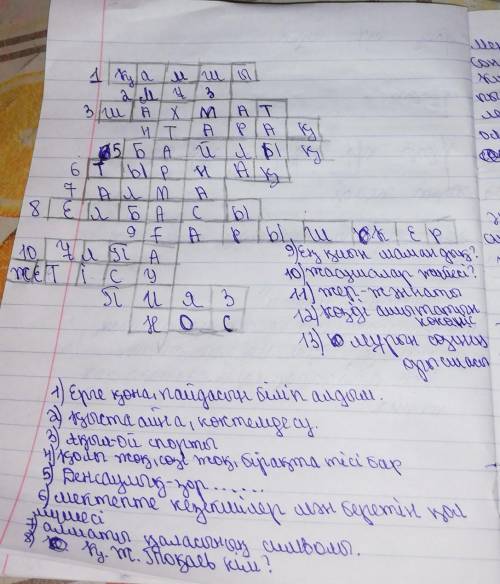 1 Қ А М Ш Ы
2 М Ұ З
3 Ш А Х М А Т
Т А Р А Қ
5 Б А Й Л Ы Қ
6 Т Ы Р Н А Қ
7 А Л М А
8 Е Л Б А С Ы
9 Ғ А Р Ы Ш К Е Р
10 Ұ Л П А
ЖЕ Т І С У
П И Я З
Н О С
9) Ең қиын мамандық?
10) жасушалар жүйесі?
11) жер-жәннаты
12) көзді ашытатын
көкөніс
13) мұрын сөзінің
орысшасы
1) Ерге қона, пайдасын біліп алдым.
2) Қыста айна, көктемде су.
3) Ақыл-ой спорты
4) қолы жоқ, сөзі жоқ, бірақта тісі бар
5) Денсаулық-зор.......
6) мектепте кезекшілер мән беретін қол
мүшесі
7) алматы қаласының символы.
8) Қ. Ж. Тоқаев кім?